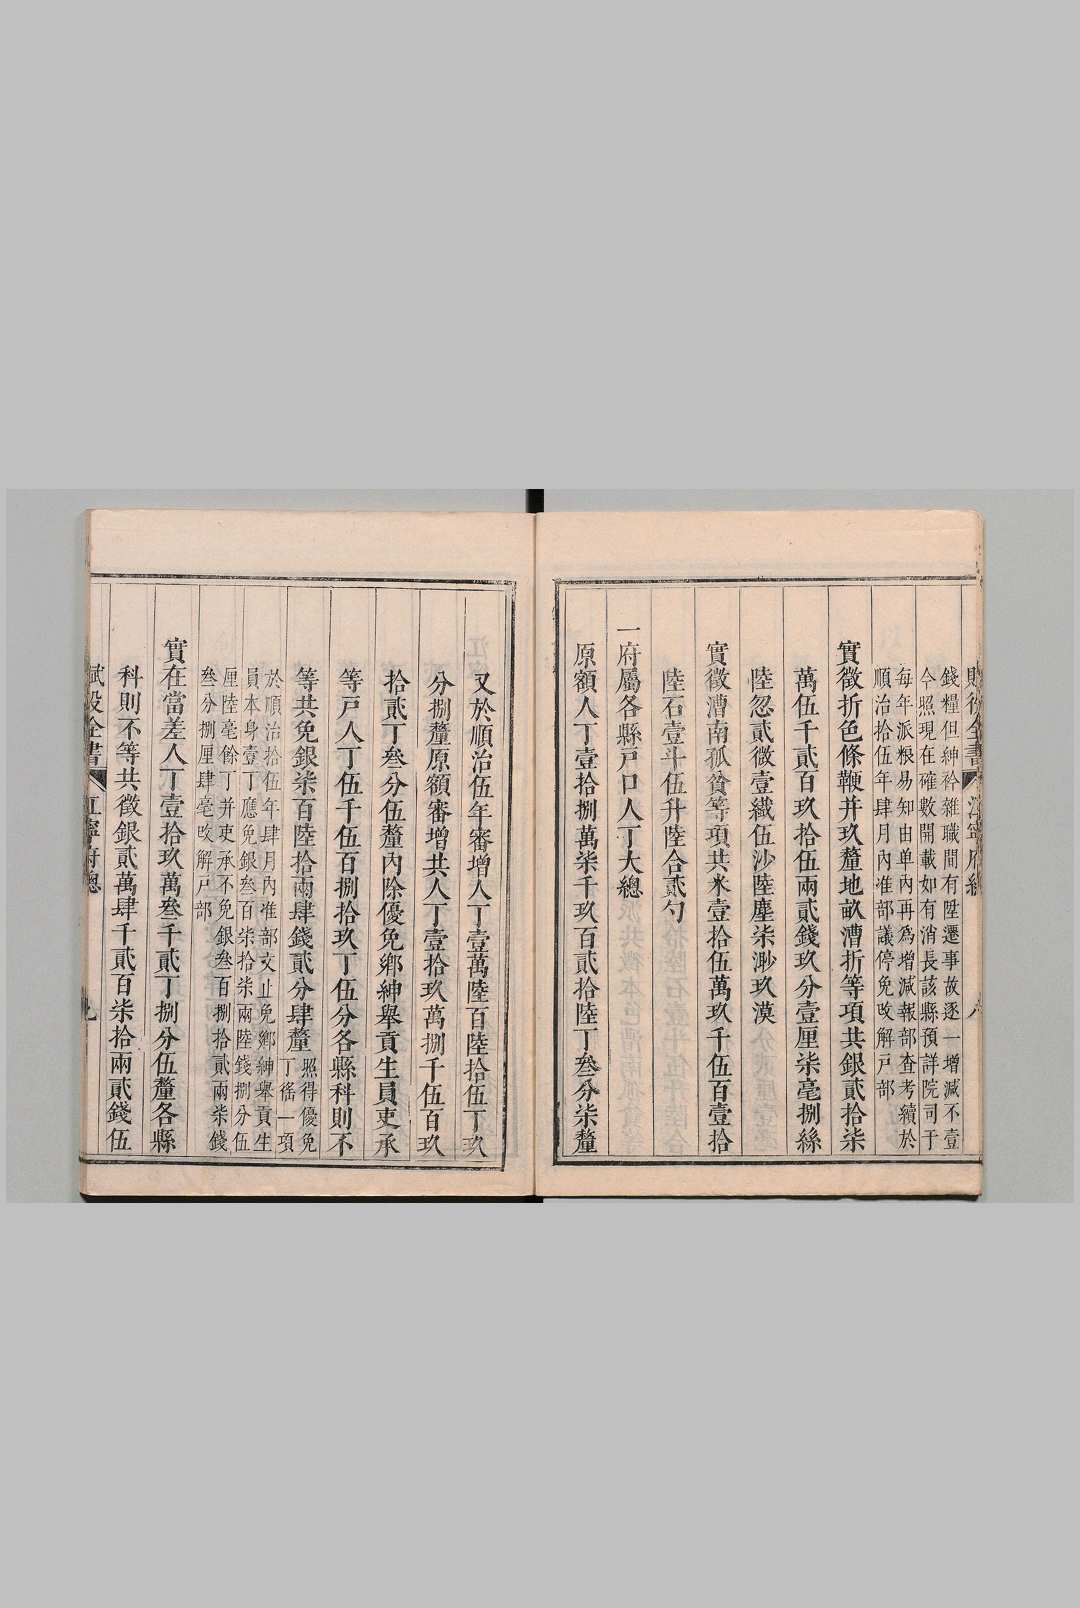 賦役全書 江寧府總 八
錢糧但紳衿雜職間有陞遷事故逐一增減不壹
今照現在確數開載如有消長該縣預詳院司于
每年派粮易知由单內再為增減報部查考續於
順治拾伍年肆月內准部議停免改解戶部
實徵折色條鞭并玖釐地畝漕折等項共銀貳拾柒
萬伍千貳百玖拾伍兩貳錢玖分壹厘柒毫捌絲
陸忽貳微壹纖伍沙陸塵柒渺玖漠
實徵漕南孤貧等項共米壹拾伍萬玖千伍百壹拾
陸石壹斗伍升陸合貳勺
一府屬各縣戶口人丁大總
原額人丁壹拾捌萬柒千玖百貳拾陸丁叁分柒釐
又於順治伍年審增人丁壹萬陸百陸拾伍丁玖
分捌釐原額審增共人丁壹拾玖萬捌千伍百玖
拾貳丁叁分伍釐內除優免鄉紳舉貢生員吏承
等戶人丁伍千伍百捌拾玖丁伍分各縣科則不
等共免銀柒百陸拾兩肆錢貳分肆釐 照得優免
丁徭一項
於順治拾伍年肆月內准部文止免鄉紳舉貢生
員本身壹丁應免銀叁百柒拾柒兩陸錢捌分伍
厘陸毫餘丁并吏承不免銀叁百捌拾貳兩柒錢
叁分捌厘肆毫改解戶部
實在當差人丁壹拾玖萬叁千貳丁捌分伍釐各縣
科則不等共徵銀貳萬肆千貳百柒拾兩貳錢伍
賦役全書 江寧府總 九